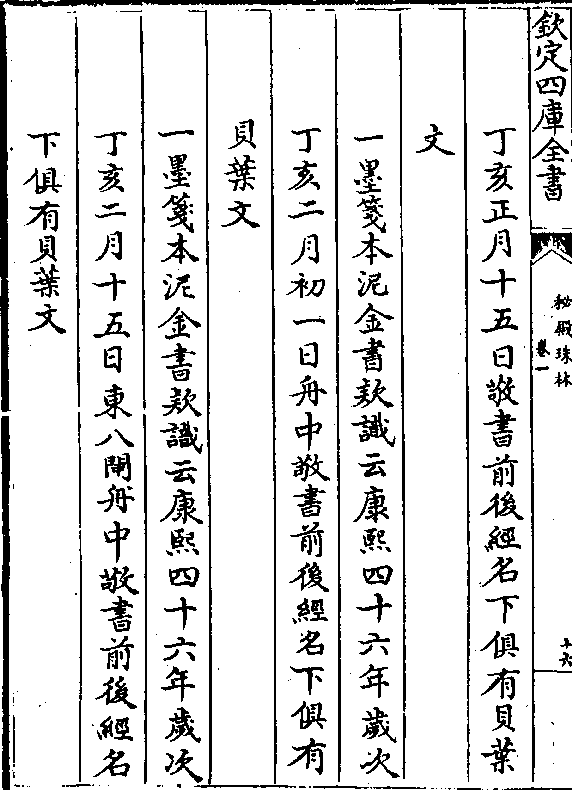 欽定四庫全書
秘殿珠林
卷一
十六
丁亥正月十五日敬書前後經名下俱有貝葉
文
一墨箋本泥金書款識云康熙四十六年歲次
丁亥二月初一日舟中敬書前後經名下俱有
貝葉文
一墨箋本泥金書款識云康熙四十六年歲次
丁亥二月十五日東八閘舟中敬書前後經名
下俱有貝葉文